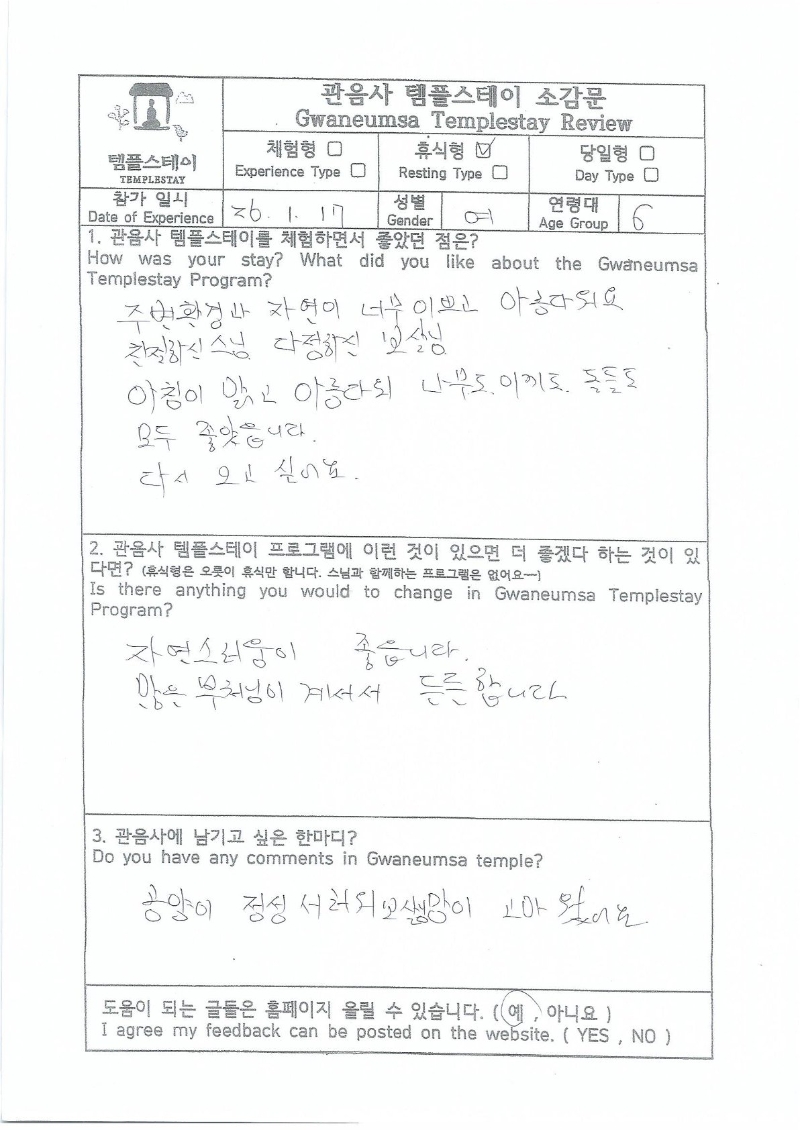 템플스테이
TEMPLESTAY
관음사 템플스테이 소감문
Gwaneumsa Templestay Review
체험형 □
Experience Type □
휴식형 ☑
Resting Type □
당일형 □
Day Type □
참가 일시
Date of Experience
26. 1. 17
성별
Gender
여
연령대
Age Group
6
1. 관음사 템플스테이를 체험하면서 좋았던 점은?
How was your stay? What did you like about the Gwaneumsa
Templestay Program?
주변환경과 자연이 너무 이쁘고 아름다워요
친절하신 스님 다정하신 보살님
아침이 맑고 아름다워 나무도. 이끼도. 돌들도
모두 좋앗읍니다.
다시 오고 싶어요.
2. 관음사 템플스테이 프로그램에 이런 것이 있으면 더 좋겠다 하는 것이 있
다면? (휴식형은 오롯이 휴식만 합니다. 스님과 함께하는 프로그램은 없어요~~)
Is there anything you would to change in Gwaneumsa Templestay
Program?
자연스러움이 좋읍니다.
많은 부처님이 계셔서 든든합니다
3. 관음사에 남기고 싶은 한마디?
Do you have any comments in Gwaneumsa temple?
공양이 정성 고마웠어요
도움이 되는 글들은 홈페이지 올릴 수 있습니다. ( 예 , 아니요 )
I agree my feedback can be posted on the website. ( YES , NO )